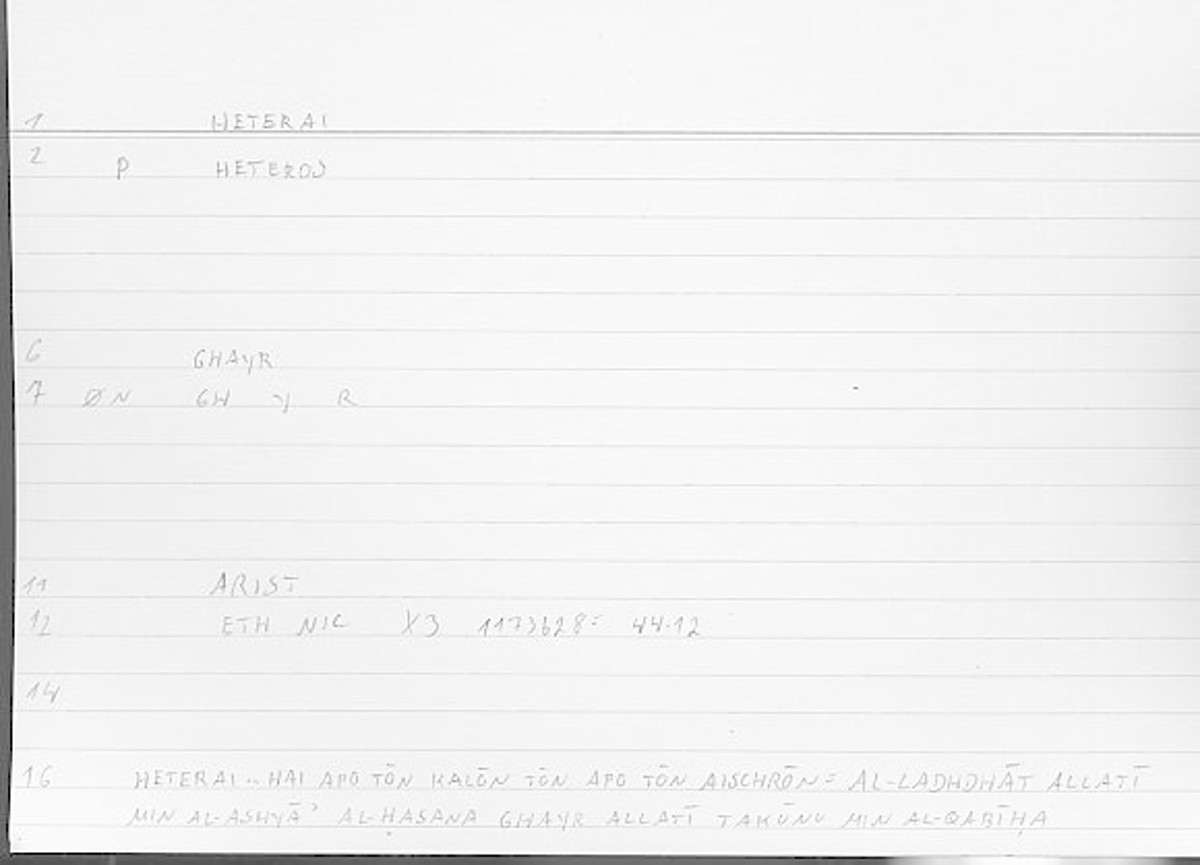 1 HETERAI
2 P HETEROS
6 GHAYR
7 ØN GH Y R
11 ARIST
12 ETH NIC X3 1173b28= 44.12
14
16 HETERAI.. HAI APO TŌN KALŌN TŌN APO TŌN AISCHRŌN= AL-LADHDHĀT ALLATĪ
MIN AL-ASHYĀʾ AL-ḤASANA GHAYR ALLATĪ TAKŪNU MIN AL-QABĪḤA